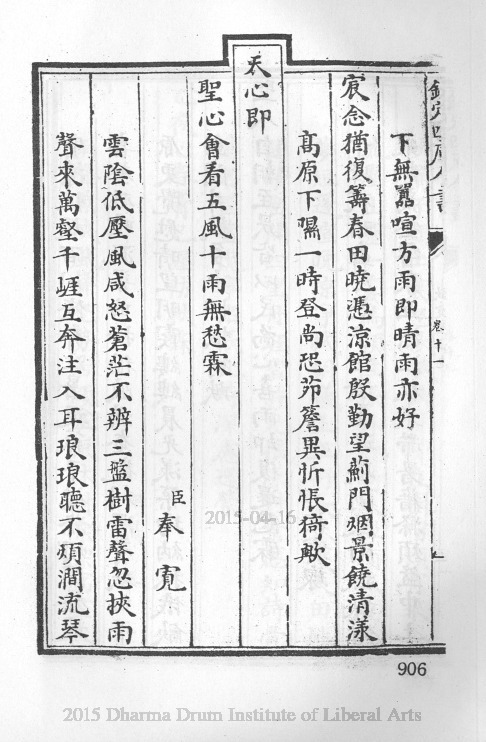 欽定四庫全書
卷十一
下無囂喧方雨即晴雨亦好
宸念猶復籌春田曉憑涼館殷勤望薊門烟景饒清漾
高原下隰一時登尚恐茆簷異忻悵猗歟
天心即
聖心會看五風十雨無愁霖
臣奉寛
雲陰低壓風咸怒蒼茫不辨三盤樹雷聲忽挾雨
聲來萬壑千崖互奔注入耳琅琅聽不煩澗流琴
906
2015-04-16
2015 Dharma Drum Institute of Liberal Arts